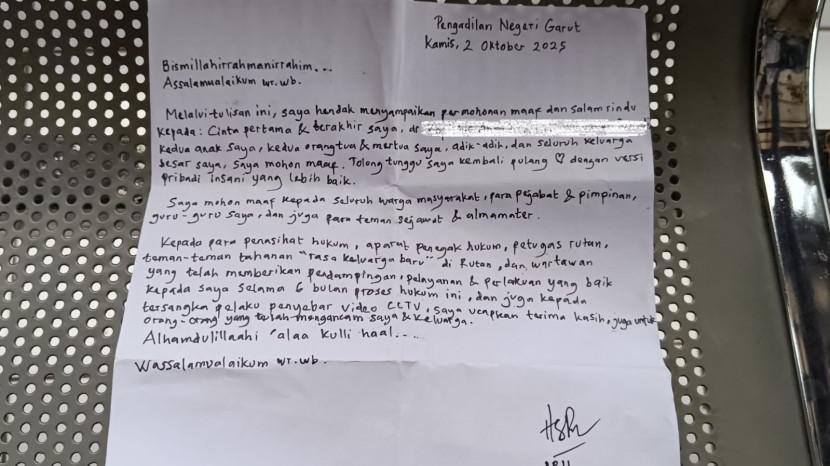 Pengadilan Negeri Garut
Kamis, 2 Oktober 2025
Bismillahirrahmanirrahim...
Assalamualaikum wr.wb.
Melalui tulisan ini, saya hendak menyampaikan permohonan maaf dan salam rindu
kepada: Cinta pertama & terakhir saya, dr
kedua anak saya, kedua orangtua & mertua saya, adik-adik, dan seluruh keluarga
besar saya, saya mohon maaf. Tolong tunggu saya kembali pulang ♡ dengan versi
pribadi insani yang lebih baik.
Saya mohon maaf kepada seluruh warga masyarakat, para pejabat & pimpinan,
guru-guru saya, dan juga para teman sejawat & almamater.
Kepada para penasihat hukum, aparat penegak hukum, petugas rutan,
teman-teman tahanan "rasa keluarga baru" di Rutan, dan wartawan
yang telah memberikan pendampingan, pelayanan & perlakuan yang baik
kepada saya selama 6 bulan proses hukum ini, dan juga kepada
tersangka pelaku penyebar video CCTV, saya ucapkan terima kasih, juga untuk
orang-orang yang telah mengancam saya & keluarga.
Alhamdulillaahi 'alaa kulli haal...
Wassalamualaikum wr.wb.